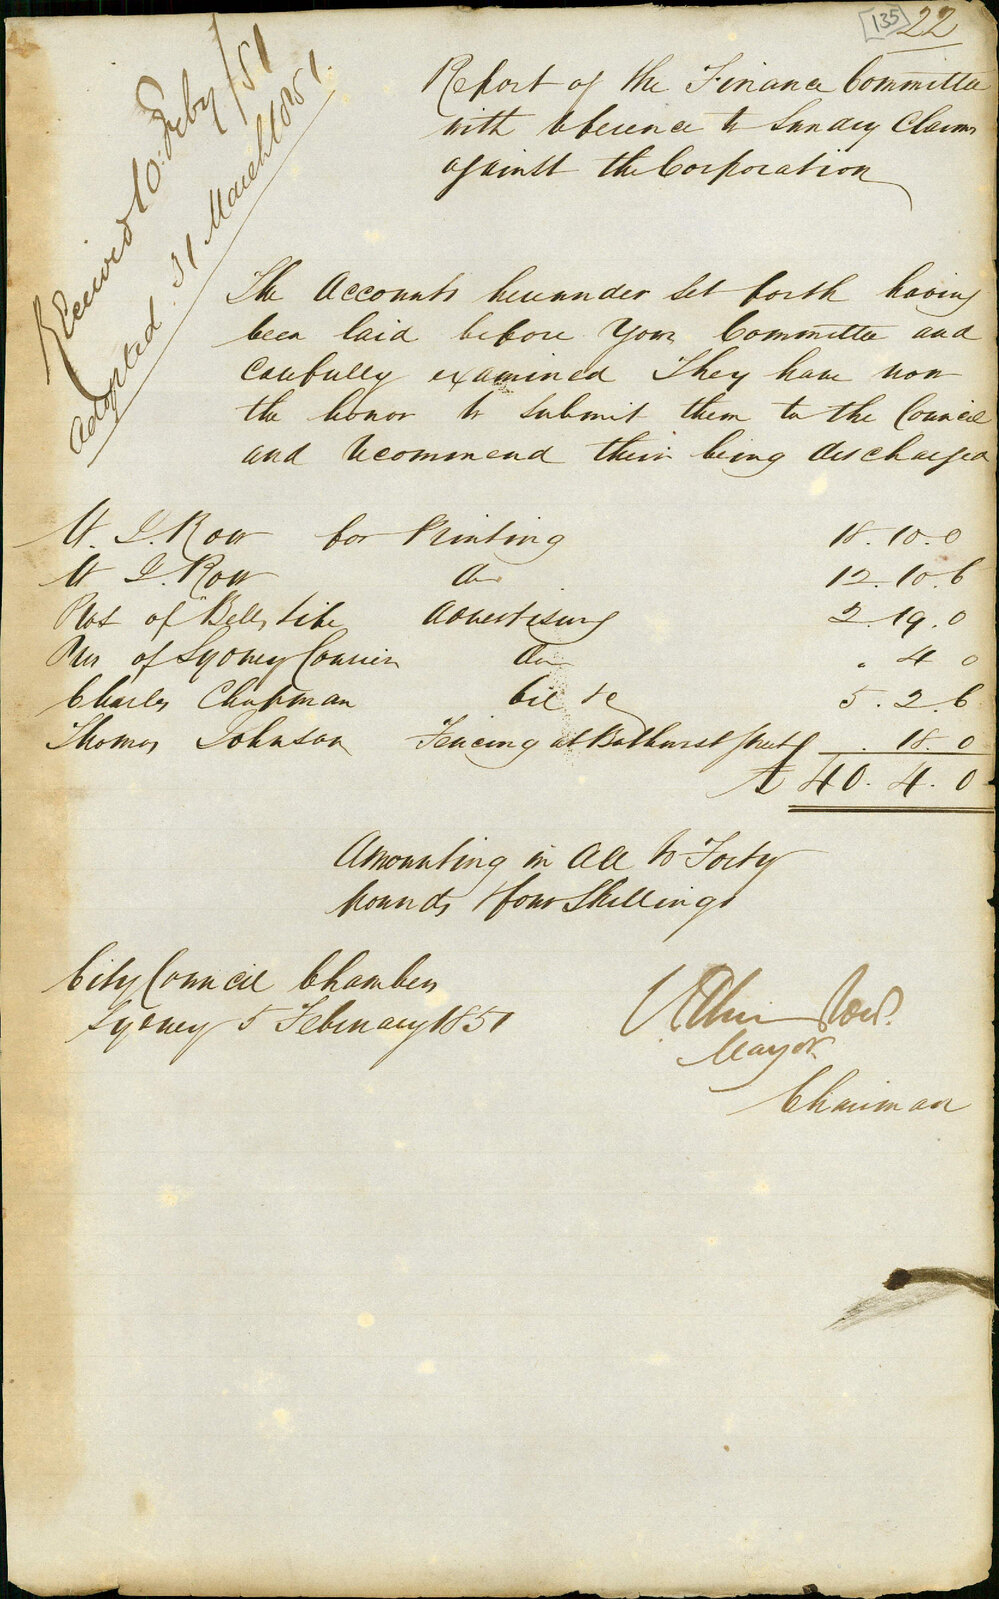 [135] 22
Received 10 Feby / 51
Adopted 31 March 1851.
Report of the Finance Committee
with reference to Sundry Claims
against the Corporation
The Accounts hereunder set forth having
been laid before Your Committee and
Carefully examined They have now
the honor to submit them to the Council
and recommend their being discharged
W. J. Row for Printing 18. 10. 0
W J. Row do 12. 10. 6
of Bells Life Advertising 2. 19. 0
of Sydney Courier do . 4 0
Charles Chapman Oil &c 5. 2. 6
Thomas Johnson Fencing at Bathurst Street . 18. 0
£ 40. 4. 0
Amounting in all to Forty
Pounds & four Shillings
City Council Chambers
Sydney 5 February 1851
Mayor
Chairman